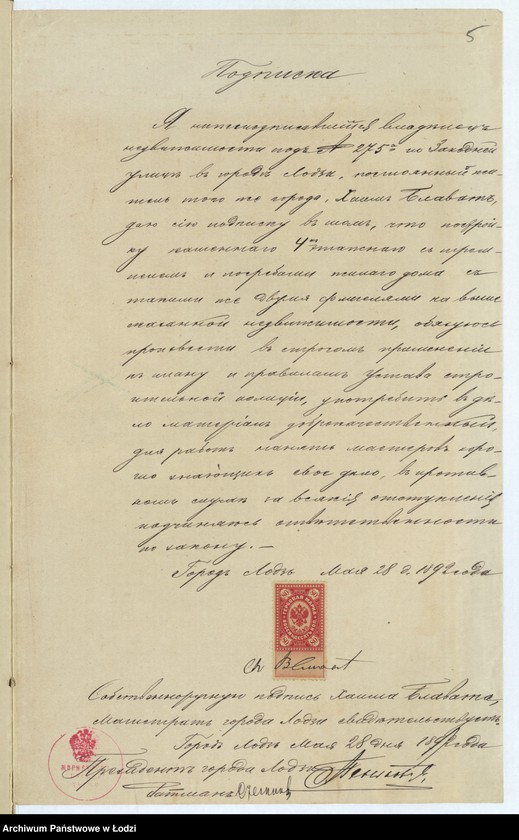 5
Подписка
Я нижеподписавшійся владѣлецъ
недвижимости подъ № 275а по Заходней
улицѣ въ городѣ Лодзи, постоянный жи-
тель того же города, Хаимъ Блаватъ,
даю сію подписку въ томъ, что построй-
ку каменнаго 4хъ этажнаго съ
и погребами жилаго дома съ
такими же двумя флигелями на выше
сказанной недвижимости, обязуюсь
произвести въ строгомъ примѣненіи
къ плану и правиламъ Устава стро-
ительной полиціи, употребить въ дѣ-
ло матеріалъ доброкачественный,
для работъ нанять мастеровъ хоро-
шо знающихъ свое дѣло, въ против-
номъ случаѣ за всякія отступленія
подчиняюсь отвѣтственности
по закону. —
Городъ Лодзь Мая 28 д. 1892 года
Ch Blawat
Собственноручную подпись Хаима Блавата,
Магистратъ города Лодзи свидѣтельствуетъ.
Городъ Лодзь Мая 28 дня 1892 года
Президентъ города Лодзи
Archiwum Państwowe w Łodzi